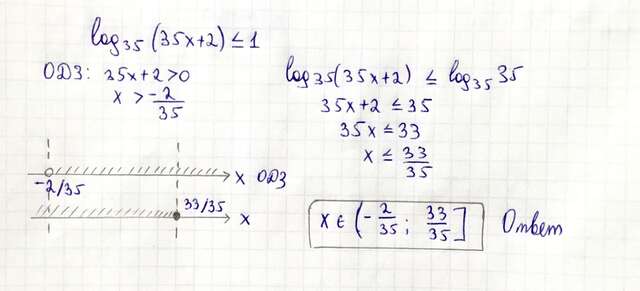 log₃₅(35x+2) ≤ 1
ОДЗ: 35x+2>0
x > -2/35
log₃₅(35x+2) ≤ log₃₅35
35x+2 ≤ 35
35x ≤ 33
x ≤ 33/35
-2/35 x ОДЗ
33/35 x
x ∈ (-2/35; 33/35] Ответ